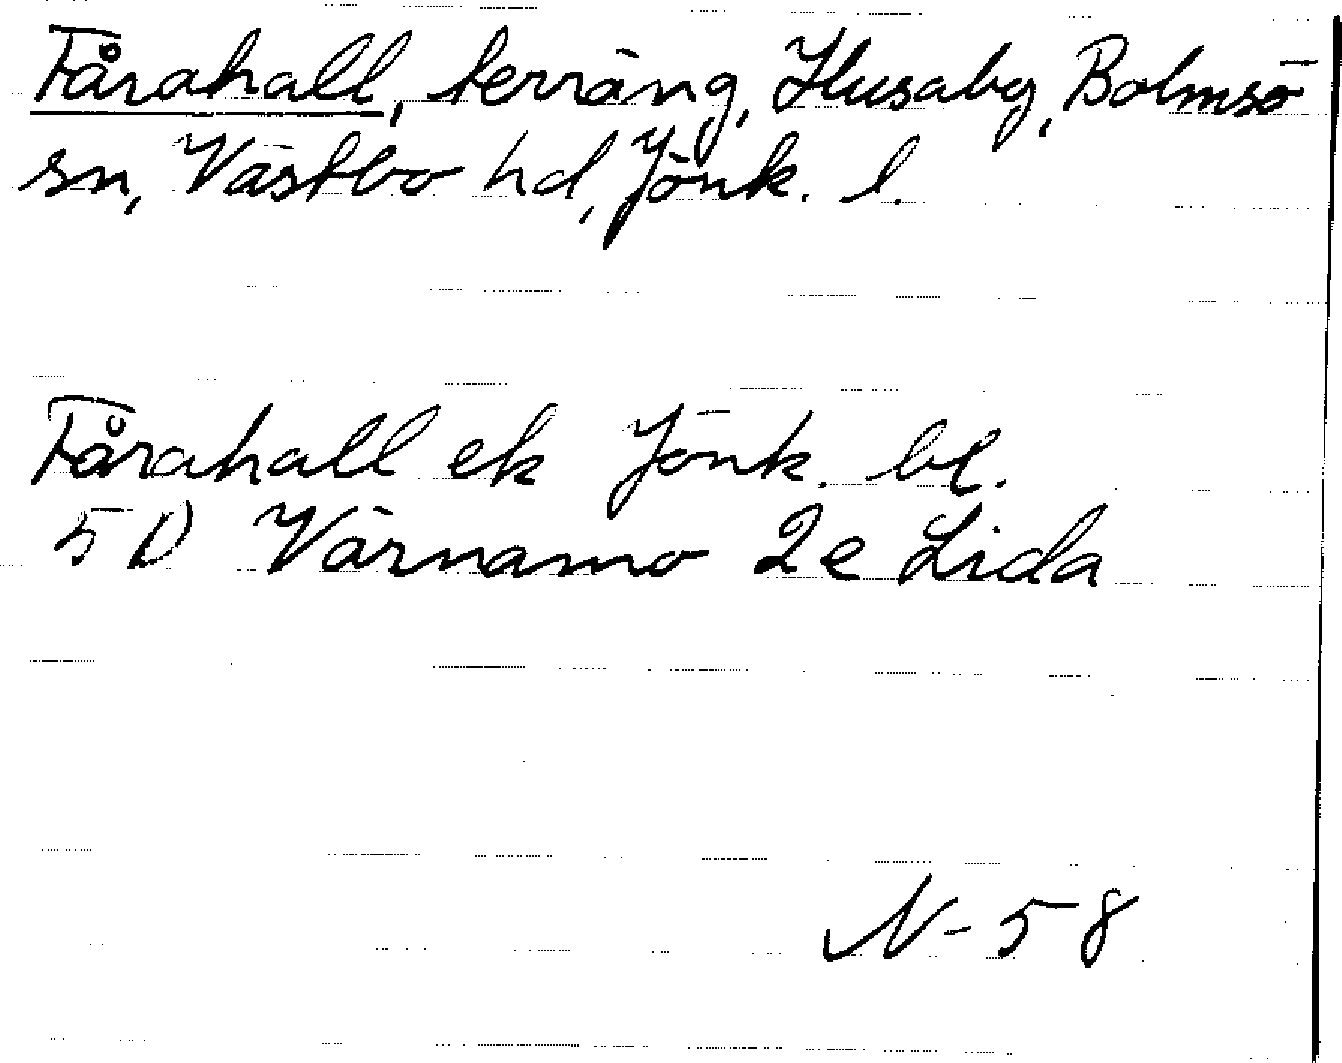 Fårahall, terräng, Husaby, Bolmsö
sn, Västbo hd, Jönk. l.
Fårahall ek Jönk. bl.
5D Värnamo 2e Lida
N-58